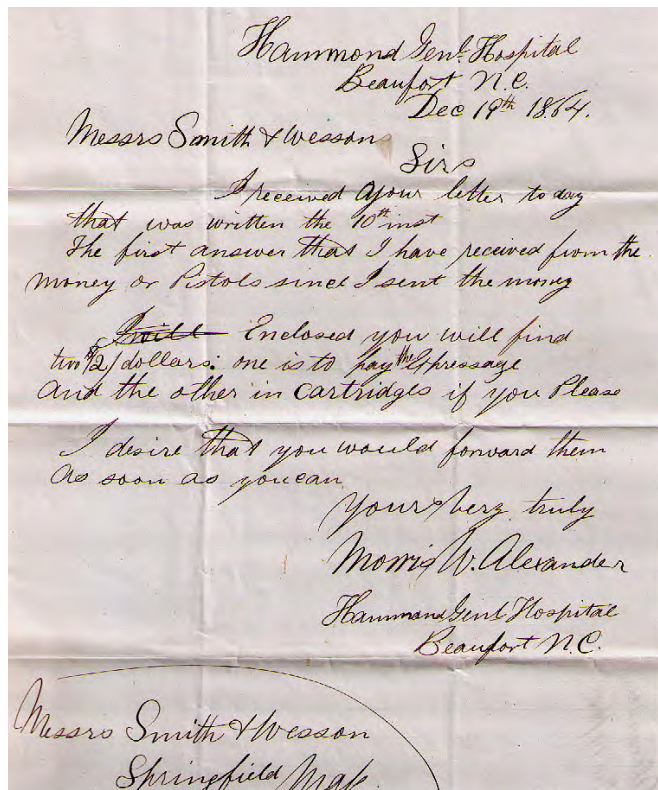 Hammond Genl. Hospital
Beaufort N.C.
Dec 19th 1864.
Messrs Smith & Wesson
Sirs
I received your letter to day
that was written the 10th inst
The first answer that I have received from the
money or Pistols since I sent the money
I will Enclosed you will find
two $2/ dollars: one is to pay the Expressage
And the other in Cartridges if you Please
I desire that you would forward them
As soon as you can
Yours Very truly
Morris W. Alexander
Hammond Genl Hospital
Beaufort N.C.
Messrs Smith & Wesson
Springfield